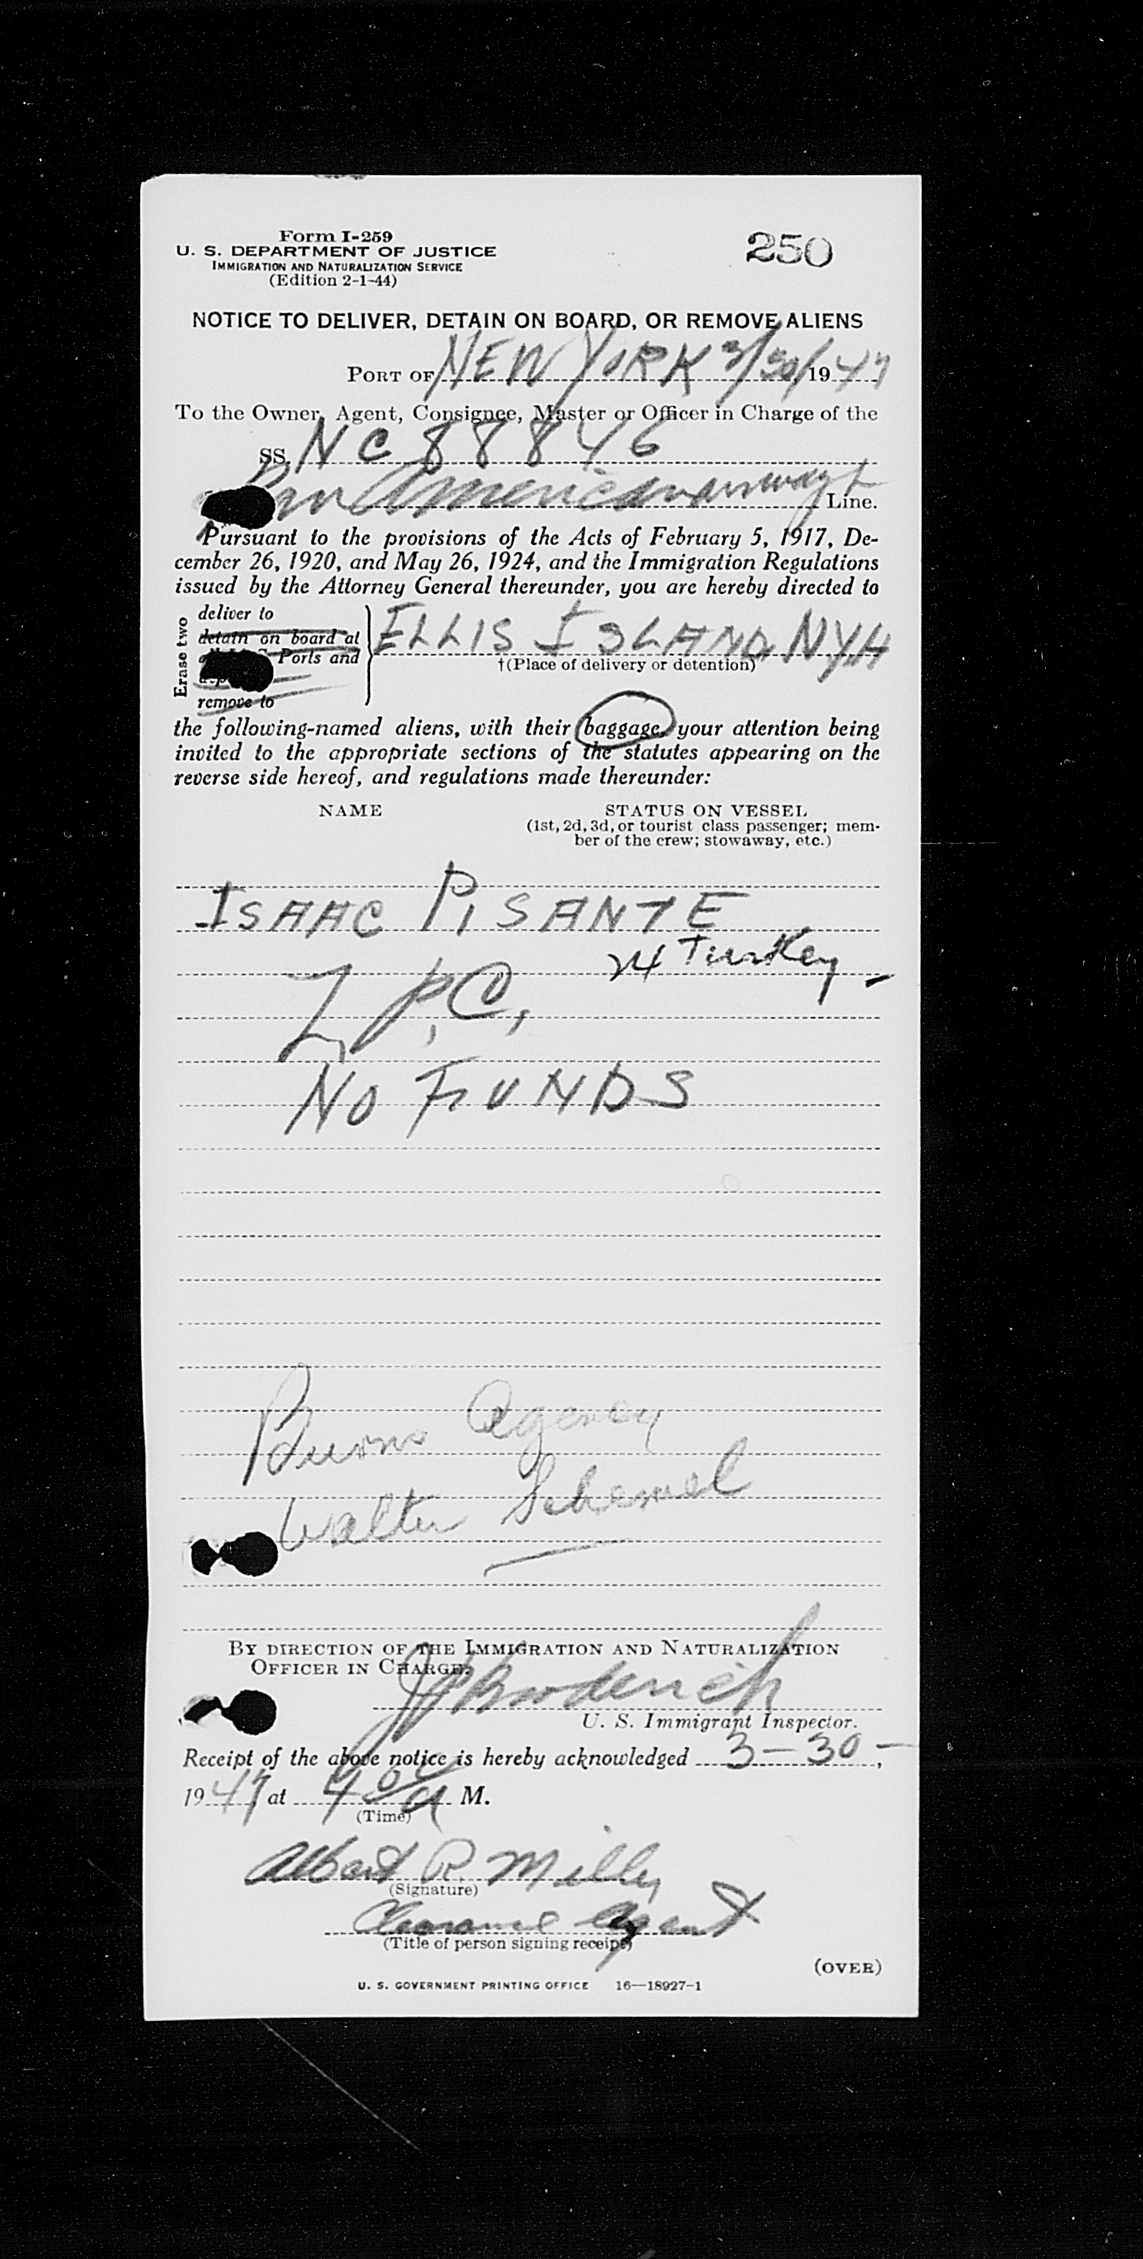 Form I-259
U. S. DEPARTMENT OF JUSTICE
IMMIGRATION AND NATURALIZATION SERVICE
(Edition 2-1-44)
250
NOTICE TO DELIVER, DETAIN ON BOARD, OR REMOVE ALIENS
PORT OF NEW YORK 3/30/1947
To the Owner, Agent, Consignee, Master or Officer in Charge of the
SS. NC 88846
Pan American Airways Line.
Pursuant to the provisions of the Acts of February 5, 1917, De-
cember 26, 1920, and May 26, 1924, and the Immigration Regulations
issued by the Attorney General thereunder, you are hereby directed to
Erase two
deliver to
detain on board at
Ports and
remove to
ELLIS ISLAND, NYH
†(Place of delivery or detention)
the following-named aliens, with their baggage, your attention being
invited to the appropriate sections of the statutes appearing on the
reverse side hereof, and regulations made thereunder:
NAME STATUS ON VESSEL
(1st, 2d, 3d, or tourist class passenger; mem-
ber of the crew; stowaway, etc.)
ISAAC PISANTE
24 Turkey -
L.P.C.,
NO FUNDS
Agency
Walter
BY DIRECTION OF THE IMMIGRATION AND NATURALIZATION
OFFICER IN CHARGE.
J Broderick
U. S. Immigrant Inspector.
Receipt of the above notice is hereby acknowledged 3-30-,
1947, at 4 00 A M.
(Time)
Albert R. Milly
(Signature)
Clearance Agent
(Title of person signing receipt)
(OVER)
U. S. GOVERNMENT PRINTING OFFICE 16—18927-1